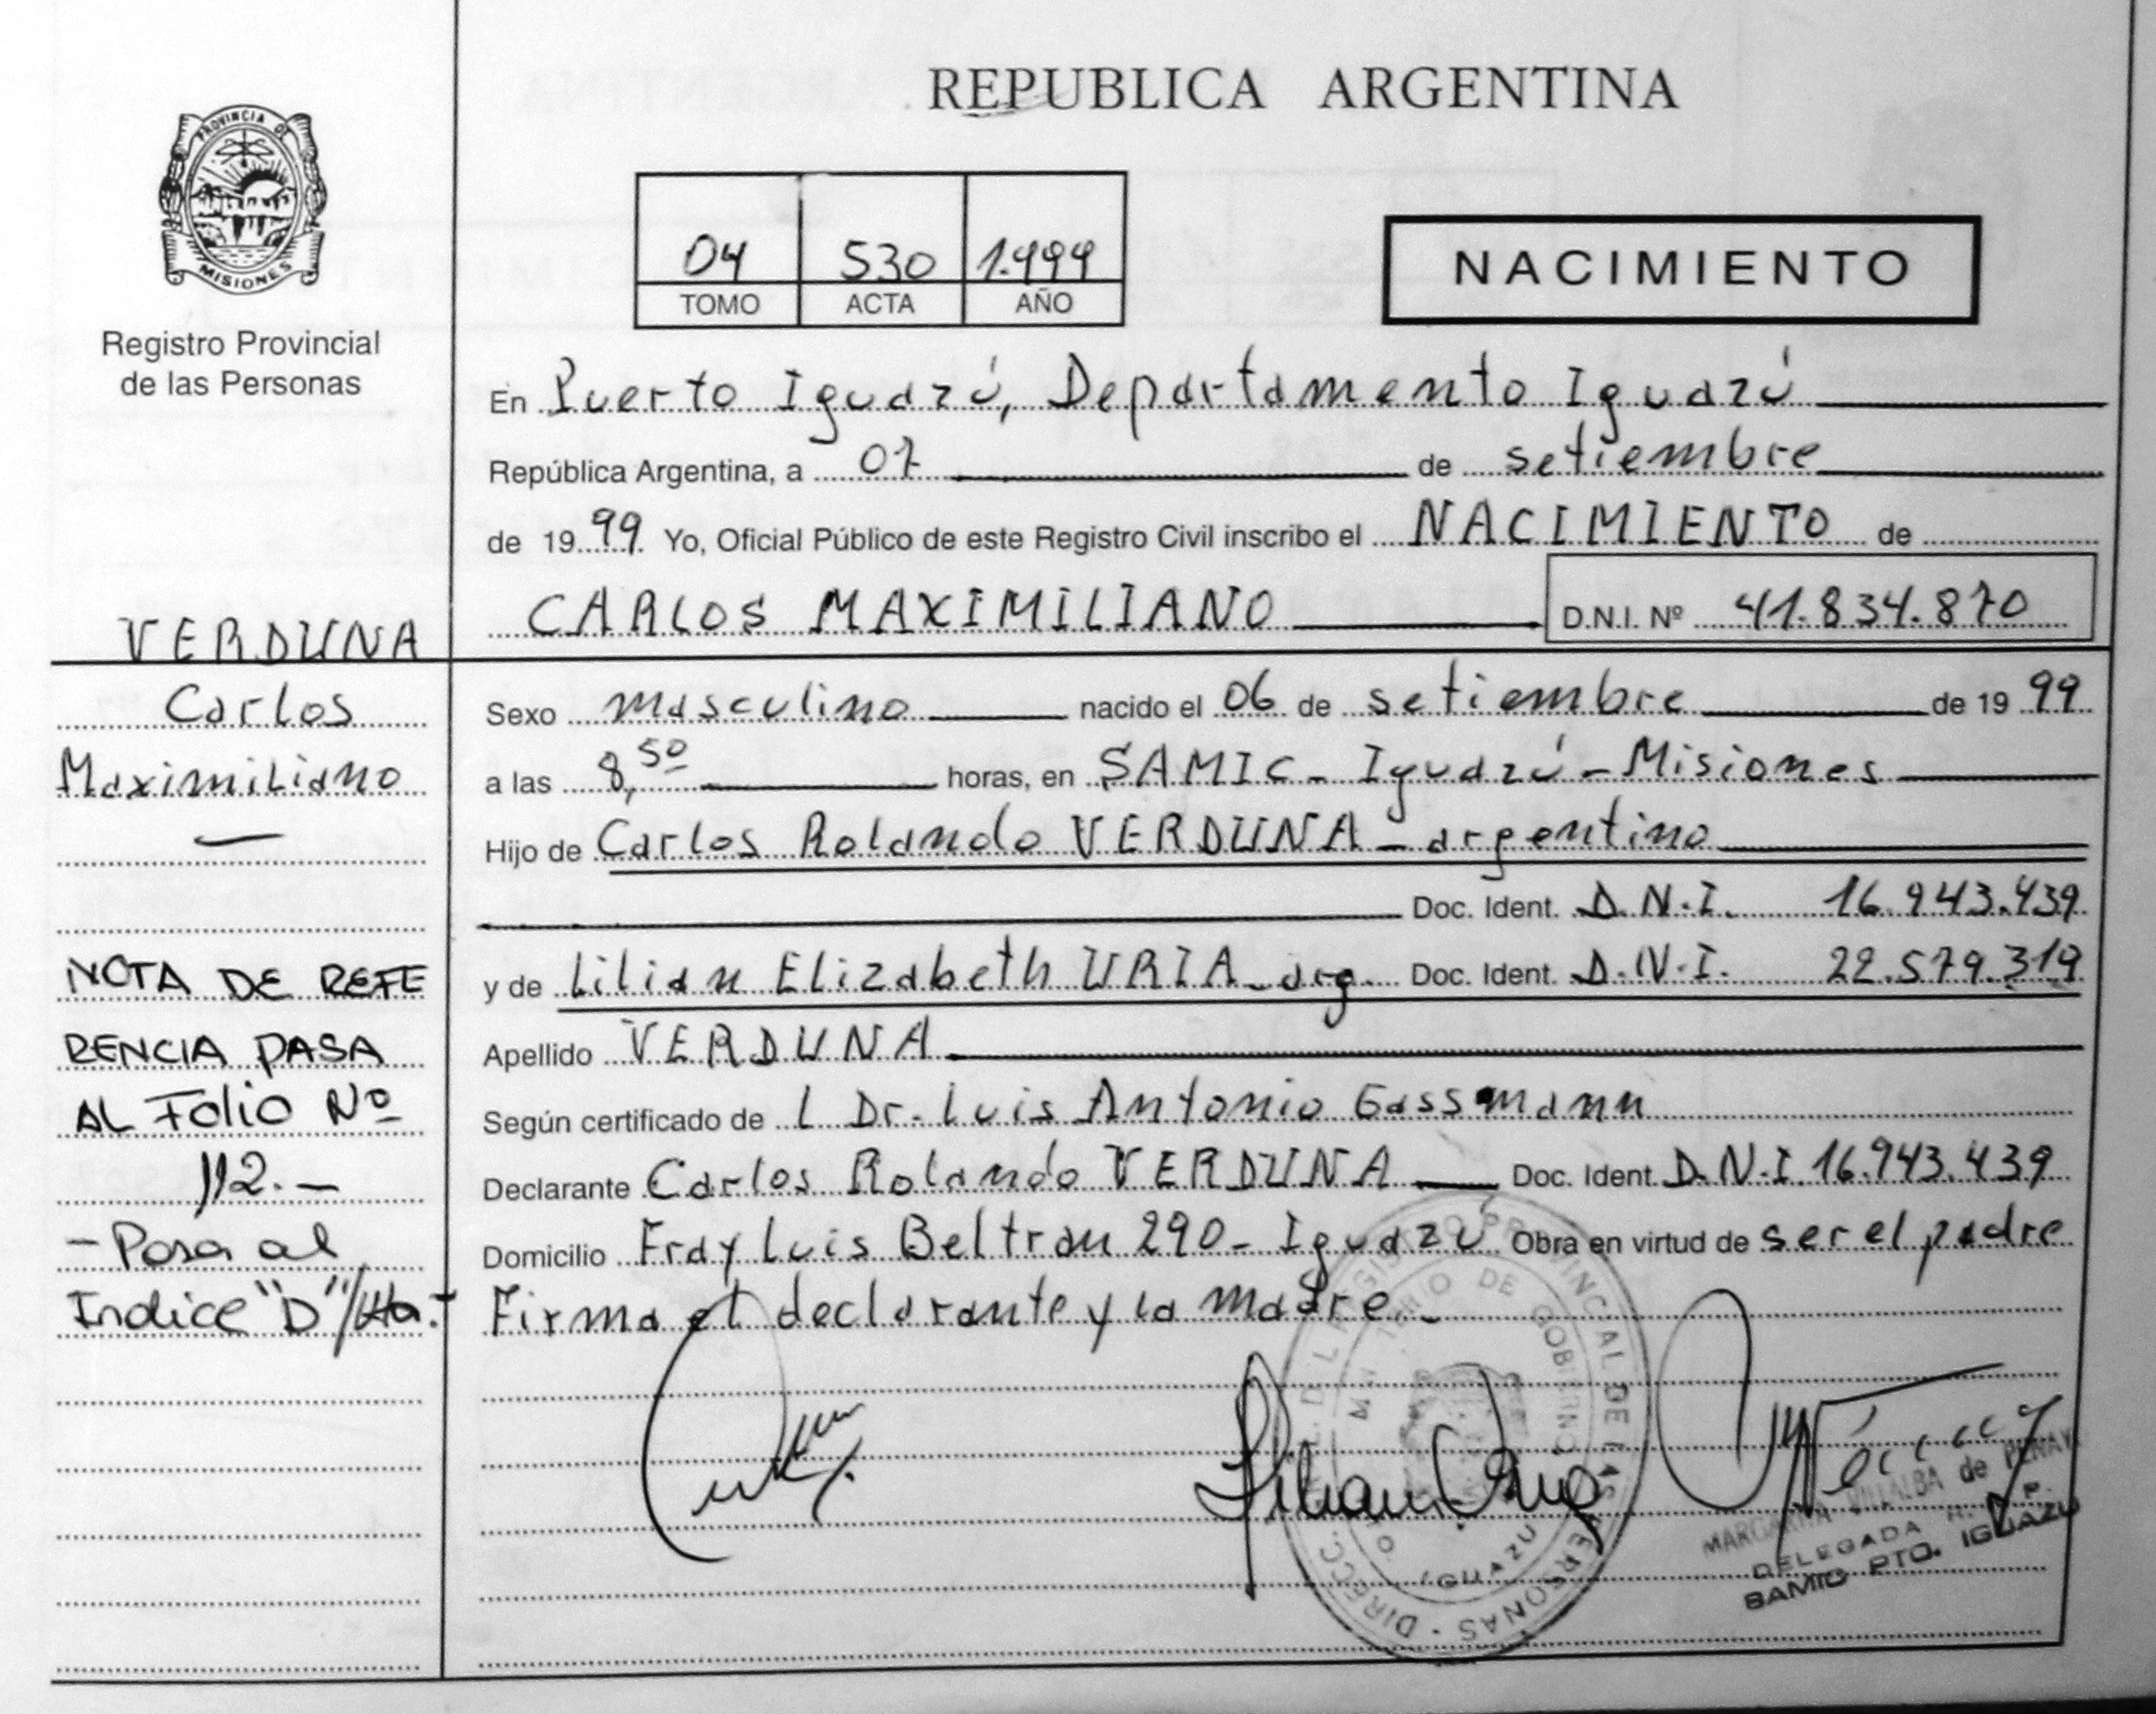 REPUBLICA ARGENTINA
PROVINCIA DE
MISIONES
Registro Provincial
de las Personas
04 530 1.999
TOMO ACTA AÑO
NACIMIENTO
En Puerto Iguazú, Departamento Iguazú
República Argentina, a 07 de setiembre
de 1999 Yo, Oficial Público de este Registro Civil inscribo el NACIMIENTO de
CARLOS MAXIMILIANO D.N.I. Nº 41.834.870
Sexo masculino nacido el 06 de setiembre de 1999
a las 8,50 horas, en SAMIC - Iguazú - Misiones
Hijo de Carlos Rolando VERDUNA - argentino
Doc. Ident. D.N.I. 16.943.439
y de Lilian Elizabeth URIA - arg. Doc. Ident. D.N.I. 22.579.319
Apellido VERDUNA
Según certificado de l Dr. Luis Antonio Gassmann
Declarante Carlos Rolando VERDUNA Doc. Ident. D.N.I. 16.943.439
Domicilio Fray Luis Beltran 290 - Iguazú Obra en virtud de ser el padre
Firma el declarante y la madre. -
VERDUNA
Carlos
Maximiliano
—
NOTA DE REFE
RENCIA PASA
AL FOLIO Nº
112.-
- Pasa al
Indice "D"
DIRECC. DEL REGISTRO PROVINCIAL DE LAS PERSONAS
DE GOBIERNO
IGUAZU
MARGARITA VILLALBA de
DELEGADA R. P.
SAMIC PTO. IGUAZU